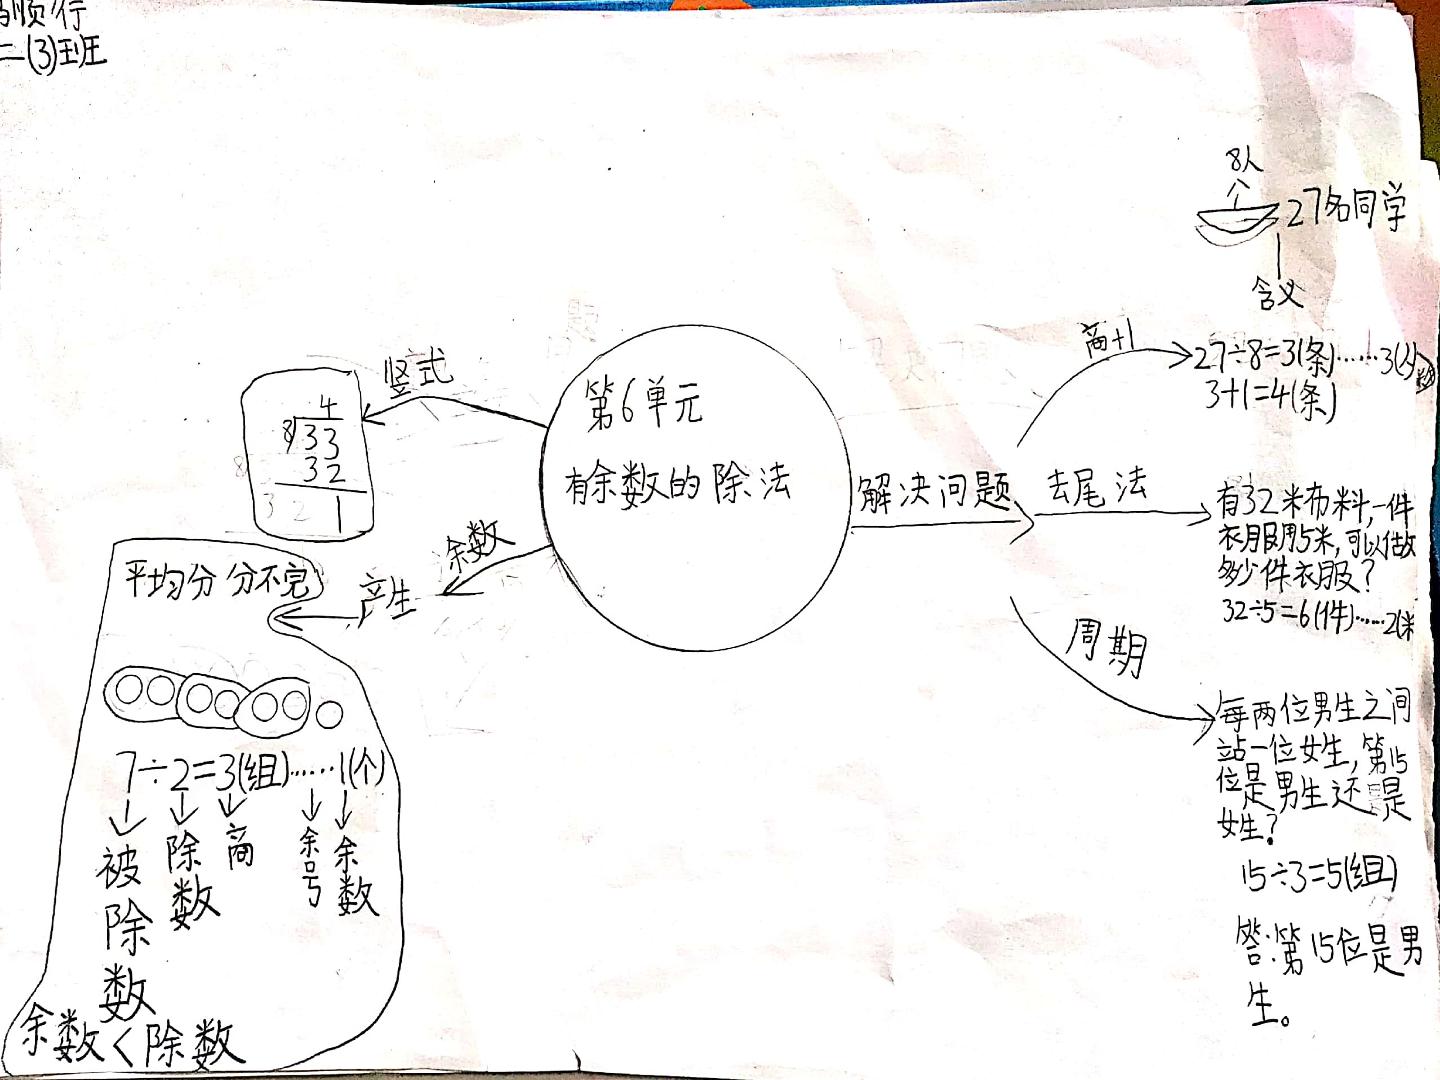 顺行
二(3)班
第6单元
有余数的除法
竖式
4
8 33
32
1
余数
产生
平均分 分不完
7÷2=3(组)……1(个)
被除数
除数
商
余号
余数
余数<除数
解决问题
商+1
8人
个
27名同学
含义
27÷8=3(条)……3(人)
3+1=4(条)
去尾法
有32米布料,一件
衣服用5米,可以做
多少件衣服?
32÷5=6(件)……2(米
周期
每两位男生之间
站一位女生,第15
位是男生还是
女生?
15÷3=5(组)
答:第15位是男
生。